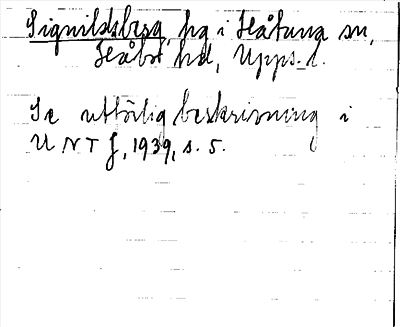 Signildsberg, hg i Håtuna sn,
Håbo hd, Upps. l.
Se utförlig beskrivning i
UNT J, 1939, s. 5.